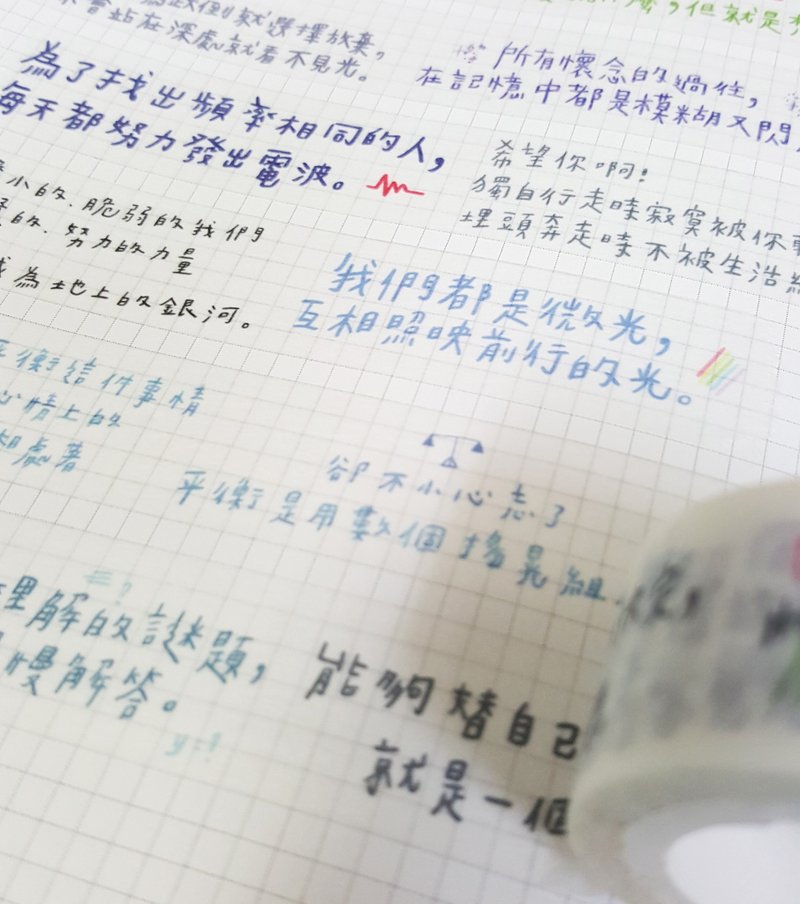 就選擇放棄，
會站在深處就看不見光。
，但就是
所有懷念的過往，
在記憶中都是模糊又閃
為了找出頻率相同的人，
每天都努力發出電波。
希望你啊！
獨自行走時寂寞被你
埋頭奔走時不被生活
小的、脆弱的我們
的、努力的力量
成為地上的銀河。
我們都是微光，
互相照映前行的光。
平衡這件事情
心情上的
相處著
卻不小心忘了
平衡是用數個搖晃組
理解的謎題，
慢解答。
y=?
能夠替自己
就是一個